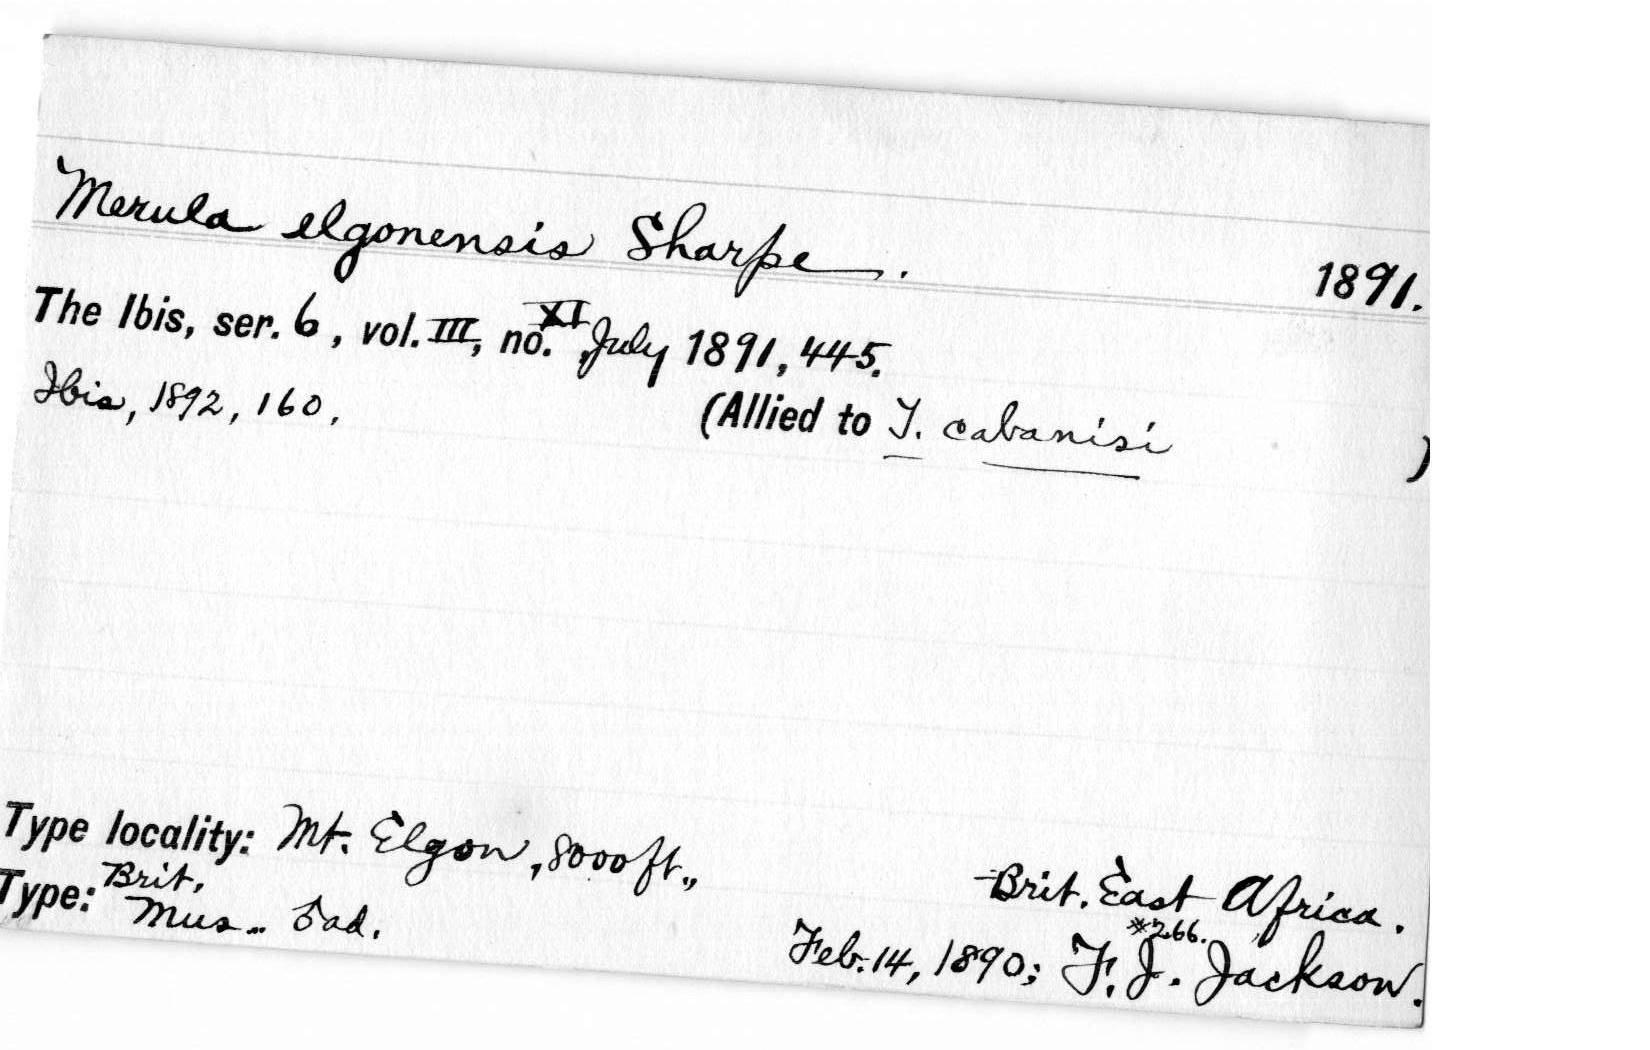 Merula elgonensis Sharpe. 1891.
The Ibis, ser. 6, vol. III, no. XI, July 1891, 445.
Ibis, 1892, 160. (Allied to T. cabanisi )
Type locality: Mt. Elgon, 8000 ft., Brit. East Africa.
Type: Brit. Mus. ♂ ad. Feb. 14, 1890; #266. F. J. Jackson.